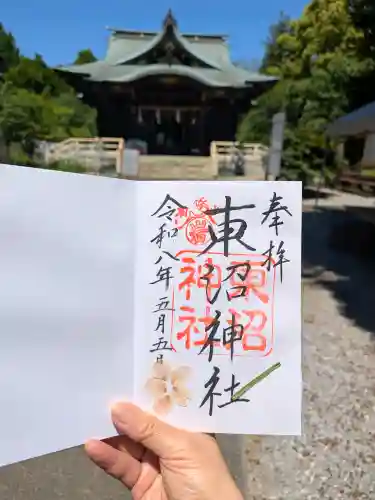 奉拝
東沼神社
東沼
神社
令和八年五月五